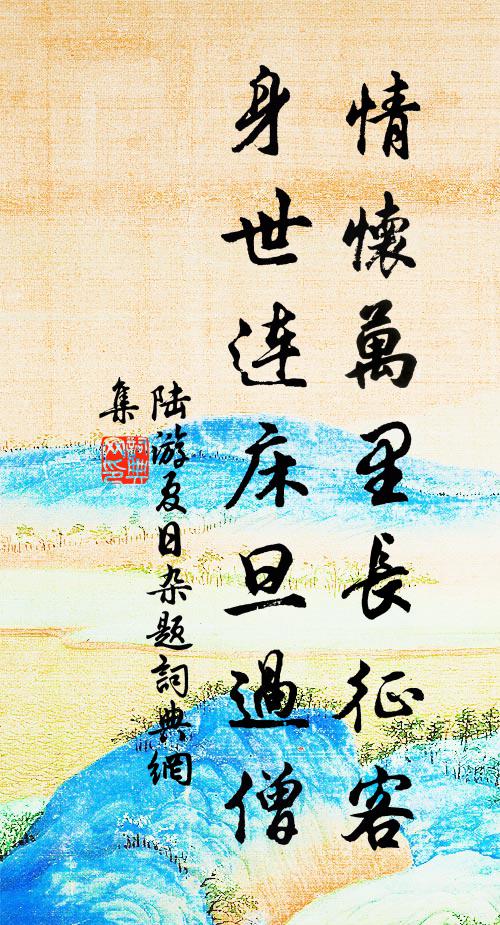 情懷萬里長征客
身世连床旦過僧
陆游夏日杂题詞典網
集